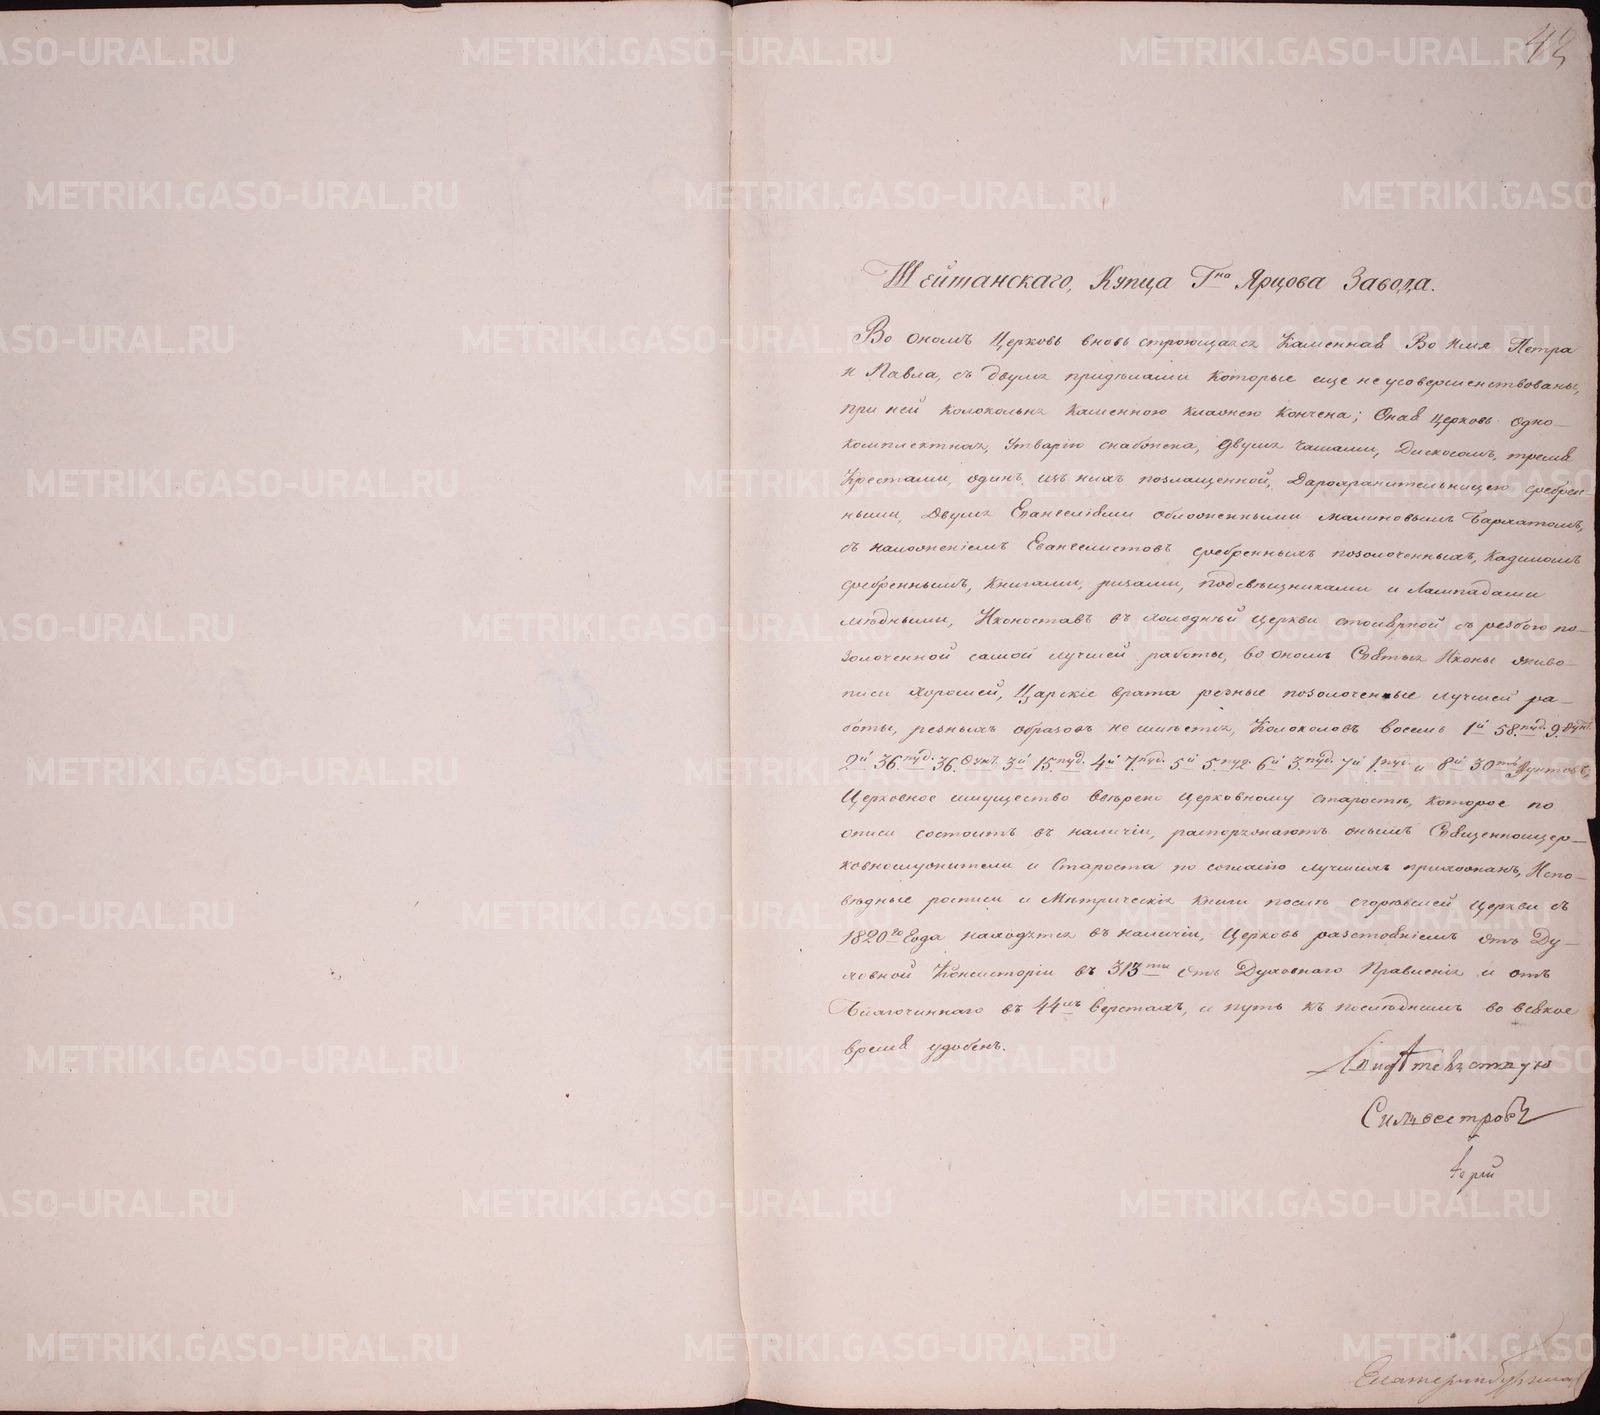 42
Шейтанскаго, Купца Г-на Ярцова Завода.
Во ономъ Церковь вновь строющаяся Каменная Во Имя Петра
и Павла, съ двумя придѣлами которые еще не усовершенствованы,
при ней колокольня каменною кладкою кончена; Оная Церковь одно-
комплектная, Утварію снабжена, двумя Чашами, Дискосомъ, тремя
Крестами, одинъ изъ нихъ позлащенной, Дарохранительницею сребрен-
ными, Двумя Евангеліями обложенными малиновымъ Бархатомъ,
съ наложеніемъ Евангелистовъ сребренныхъ позолоченныхъ, Кадиломъ
сребреннымъ, книгами, ризами, подсвѣщниками и Лампадами
мѣдными, Иконостасъ въ холодной Церкви столярной съ резбою по-
золоченной самой лучшей работы, во ономъ Святыя Иконы живо-
писи хорошей, Царскіе врата резные позолоченные лучшей ра-
боты, резныхъ образовъ не имѣется, Колоколовъ восемь 1й 58. пуд. 9. Фунт.
2й 36. пуд. 36. Фун. 3й 15. пуд. 4й 7. пуд. 5й 5. пуд. 6й 3. пуд. 7й 1. пуд. и 8й 30ть Фунтовъ,
Церковное имущество ввѣрено Церковному старостѣ, которое по
описи состоитъ въ наличіи, распоряжаютъ онымъ Священноцер-
ковнослужители и Староста по согласію лучшихъ прихожанъ, Испо-
вѣдные росписи и Метрическія книги послѣ сгорѣвшей Церкви съ
1820го Года находятся въ наличіи, Церковь разстояніемъ отъ Ду-
ховной Консисторіи въ 313ти Отъ Духовнаго Правленія и отъ
Благочиннаго въ 44хъ верстахъ, и путь къ послѣднимъ во всякое
время удобенъ.
Екатеринбургска
METRIKI.GASO-URAL.RU